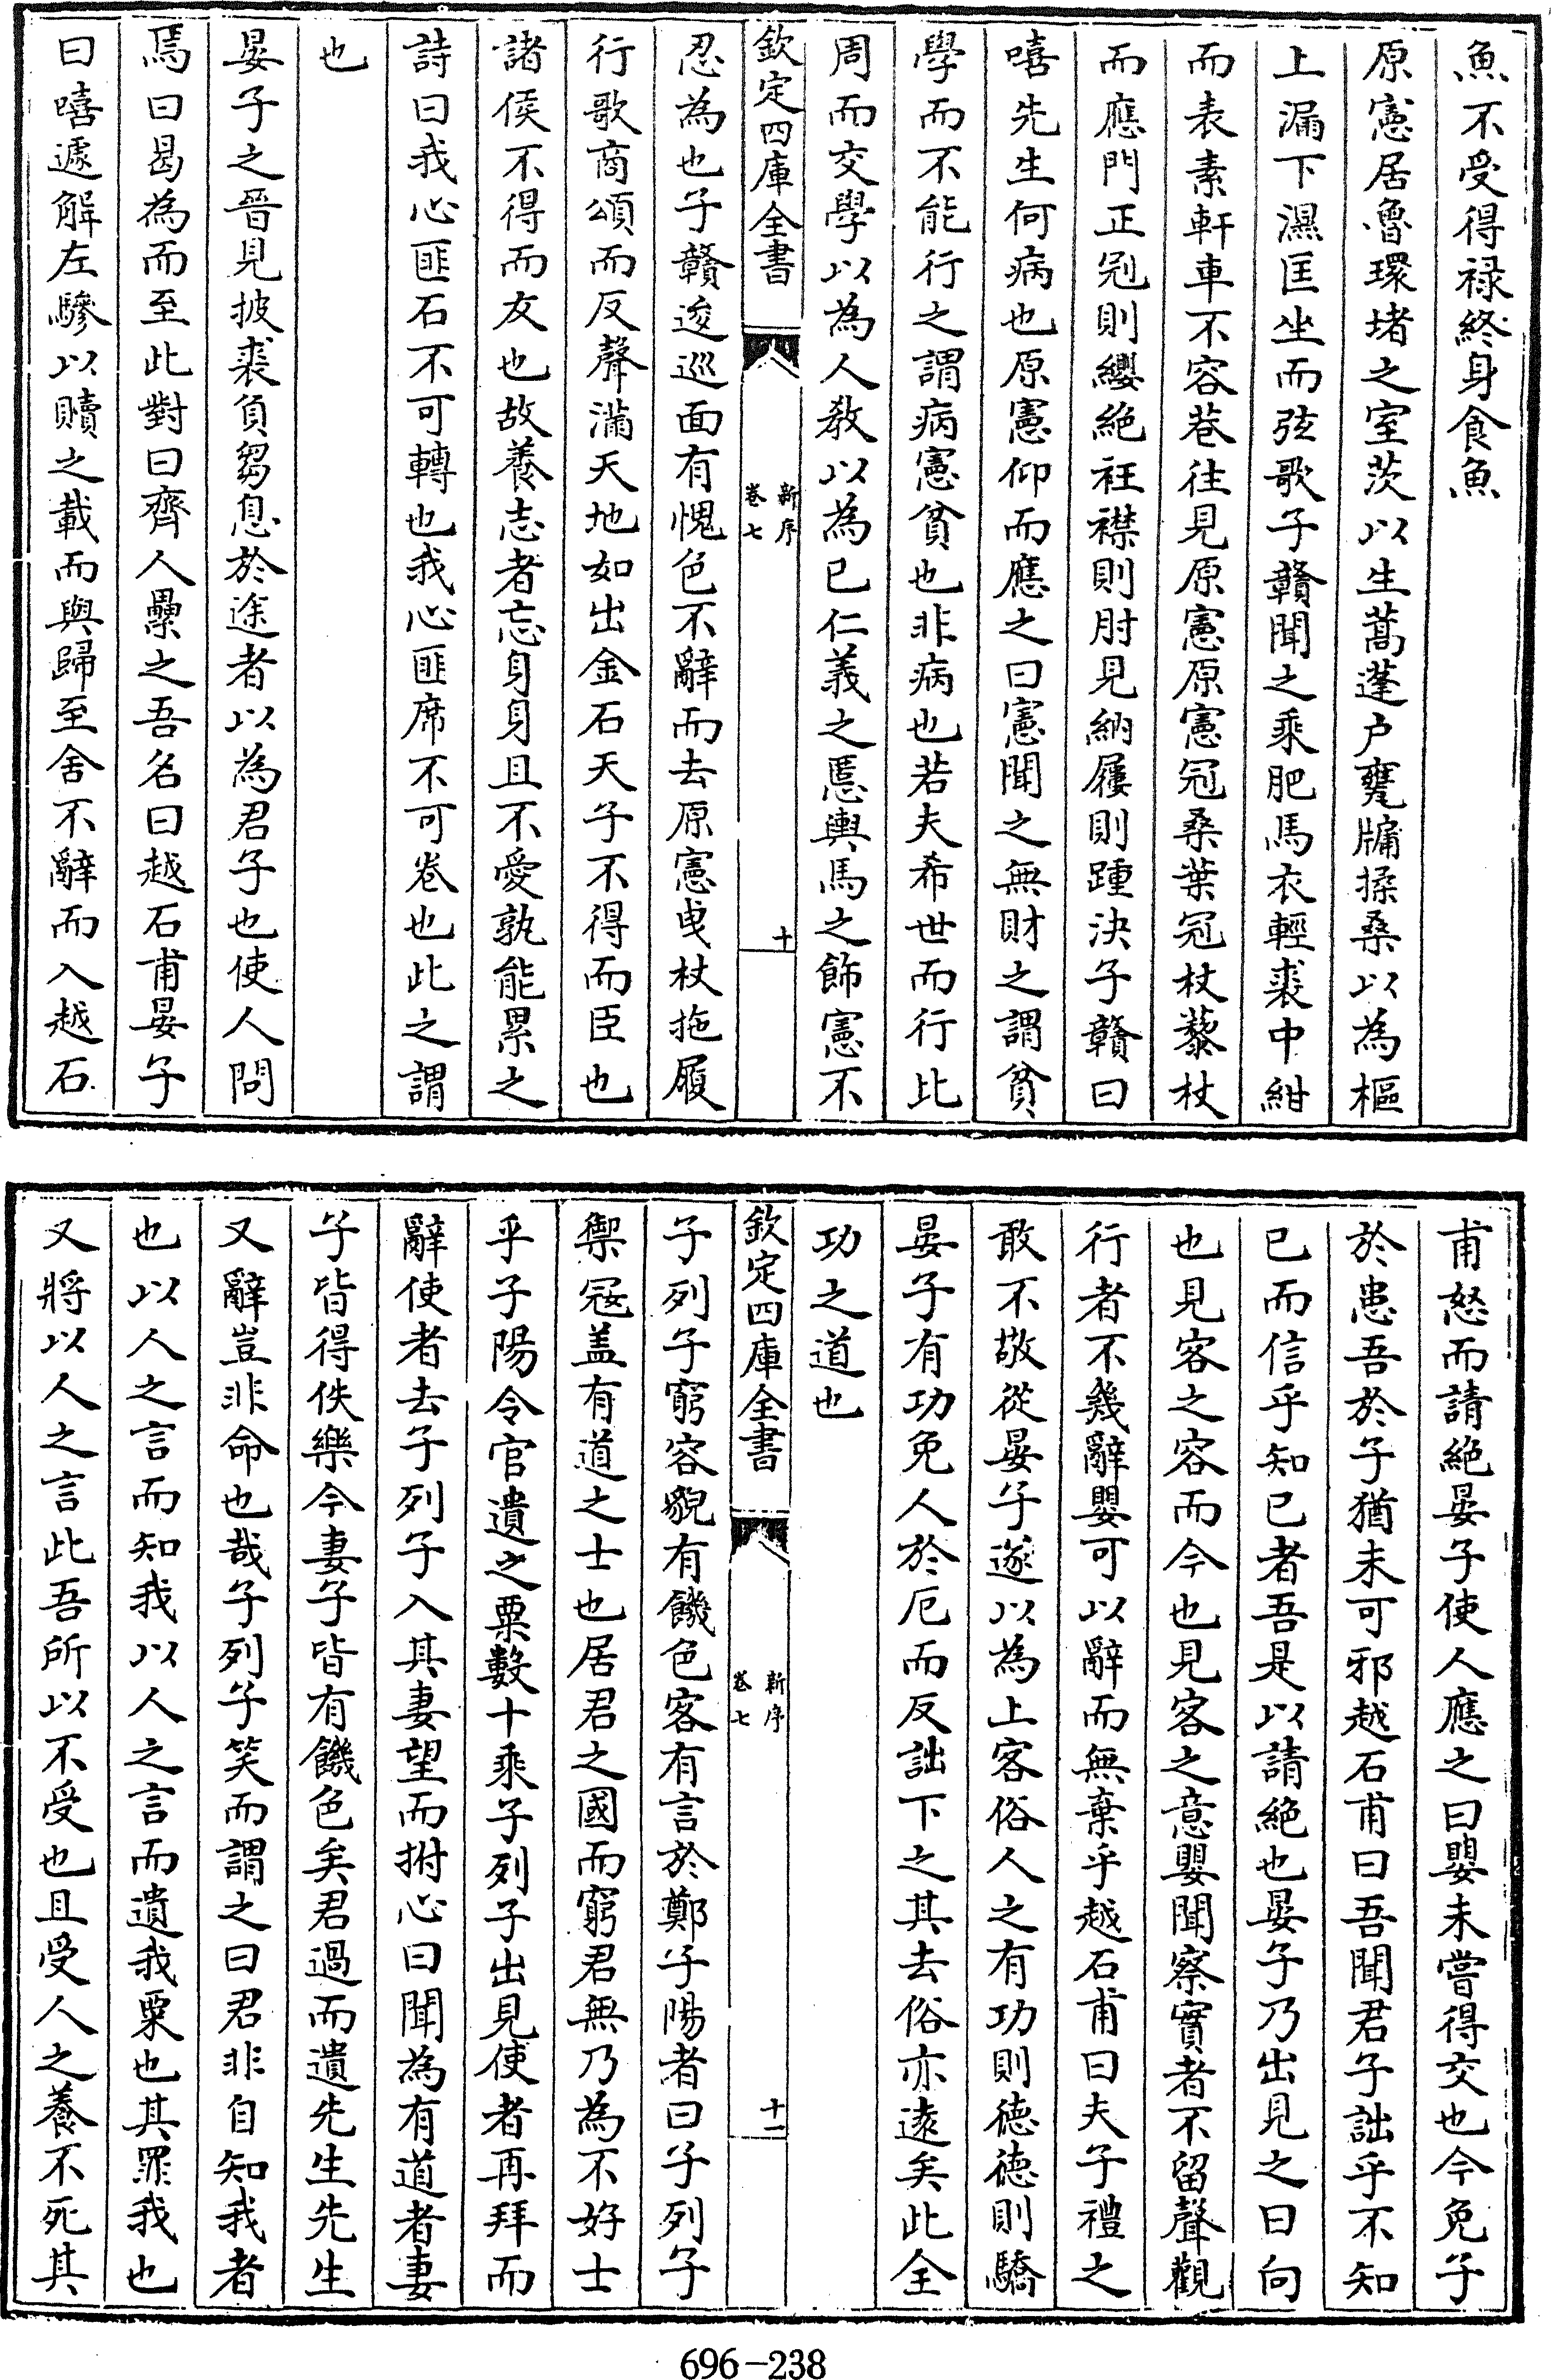 魚不受得祿終身食魚
原憲居魯環堵之室茨以生蒿蓬户甕牖揉桑以為樞
上漏下濕匡坐而弦歌子贛聞之乘肥馬衣輕裘中紺
而表素軒車不容巷往見原憲原憲冠桑葉冠杖藜杖
而應門正冠則纓絶衽襟則肘見納屨則踵決子贛曰
嘻先生何病也原憲仰而應之曰憲聞之無財之謂貧
學而不能行之謂病憲貧也非病也若夫希世而行比
周而交學以為人教以為已仁義之慝輿馬之飾憲不
欽定四庫全書
新序
卷七
十
忍為也子贛逡巡面有愧色不辭而去原憲曳杖拖履
行歌商頌而反聲滿天地如出金石天子不得而臣也
諸侯不得而友也故養志者忘身身且不愛孰能累之
詩曰我心匪石不可轉也我心匪席不可卷也此之謂
也
晏子之晉見披裘負芻息於途者以為君子也使人問
焉曰曷為而至此對曰齊人纍之吾名曰越石甫晏子
曰嘻遽解左驂以贖之載而與歸至舍不辭而入越石
甫怒而請絶晏子使人應之曰嬰未嘗得交也今免子
於患吾於子猶未可邪越石甫曰吾聞君子詘乎不知
已而信乎知已者吾是以請絶也晏子乃出見之曰向
也見客之容而今也見客之意嬰聞察實者不留聲觀
行者不幾辭嬰可以辭而無棄乎越石甫曰夫子禮之
敢不敬從晏子遂以為上客俗人之有功則徳徳則驕
晏子有功免人於厄而反詘下之其去俗亦逺矣此全
功之道也
欽定四庫全書
新序
卷七
十一
子列子窮容貌有饑色客有言於鄭子陽者曰子列子
禦寇盖有道之士也居君之國而窮君無乃為不好士
乎子陽令官遺之粟數十乘子列子出見使者再拜而
辭使者去子列子入其妻望而拊心曰聞為有道者妻
子皆得佚樂今妻子皆有饑色矣君過而遺先生先生
又辭豈非命也哉子列子笑而謂之曰君非自知我者
也以人之言而知我以人之言而遺我粟也其罪我也
又將以人之言此吾所以不受也且受人之養不死其
696-238